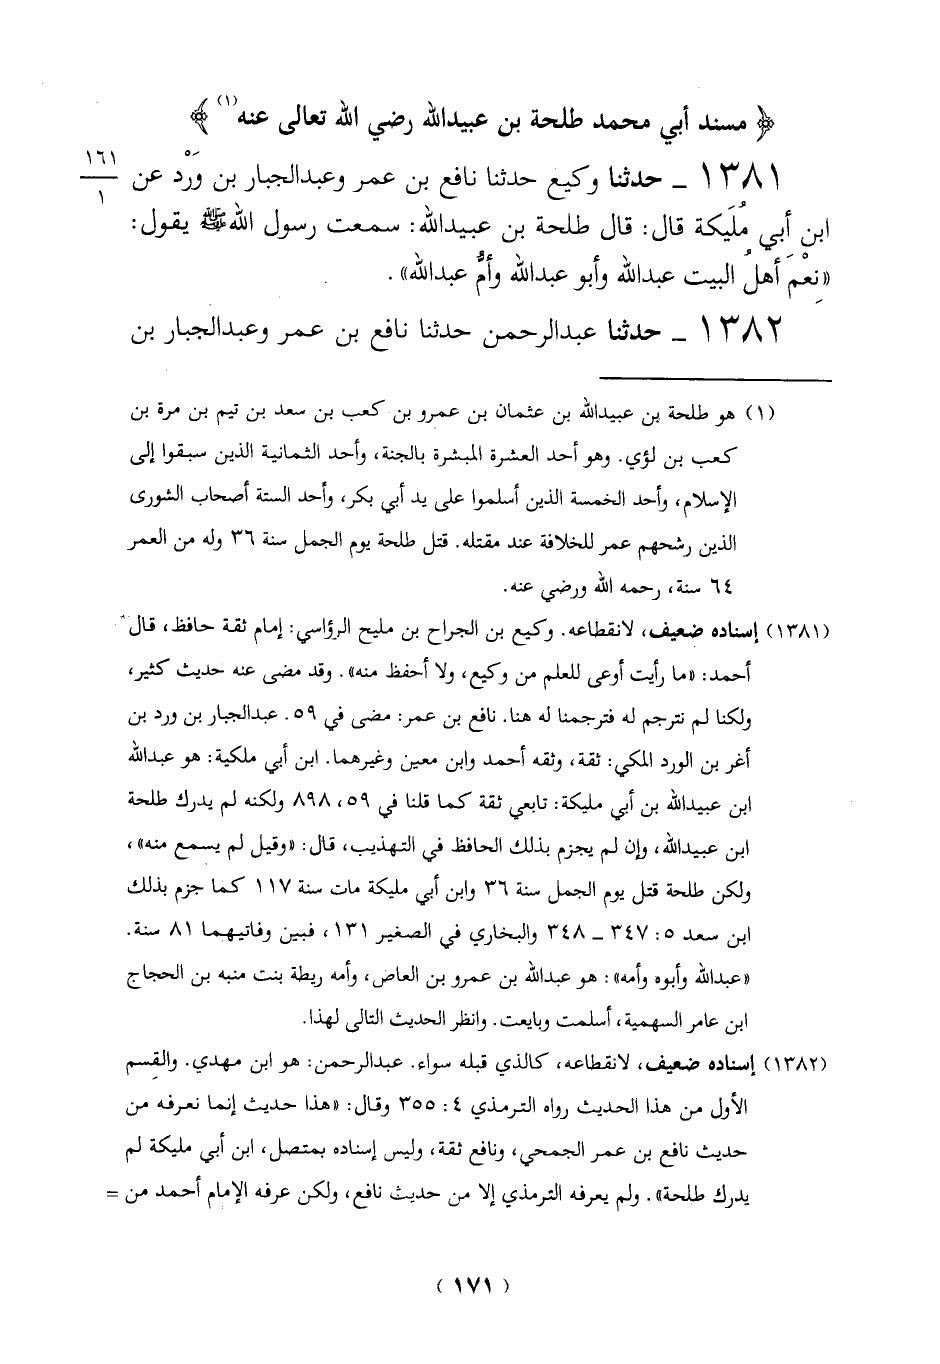 ﴿ مسند أبي محمد طلحة بن عبيدالله رضي الله تعالى عنه(١) ﴾
١٦١
١
١٣٨١ ـ حدثنا وكيع حدثنا نافع بن عمر وعبدالجبار بن وَرْد عن
ابن أبي مُلَيكة قال: قال طلحة بن عبيدالله: سمعت رسول الله ﷺ يقول:
«نِعْمَ أهلُ البيت عبدالله وأبو عبدالله وأمُّ عبدالله».
١٣٨٢ ـ حدثنا عبدالرحمن حدثنا نافع بن عمر وعبدالجبار بن
(١) هو طلحة بن عبيدالله بن عثمان بن عمرو بن كعب بن سعد بن تيم بن مرة بن
كعب بن لؤي. وهو أحد العشرة المبشرة بالجنة، وأحد الثمانية الذين سبقوا إلى
الإسلام، وأحد الخمسة الذين أسلموا على يد أبي بكر، وأحد الستة أصحاب الشورى
الذين رشحهم عمر للخلافة عند مقتله. قتل طلحة يوم الجمل سنة ٣٦ وله من العمر
٦٤ سنة، رحمه الله ورضي عنه.
(١٣٨١) إسناده ضعيف، لانقطاعه. وكيع بن الجراح بن مليح الرؤاسي: إمام ثقة حافظ، قال
أحمد: «ما رأيت أوعى للعلم من وكيع، ولا أحفظ منه». وقد مضى عنه حديث كثير،
ولكنا لم نترجم له فترجمنا له هنا. نافع بن عمر: مضى في ٥٩. عبدالجبار بن ورد بن
أغر بن الورد المكي: ثقة، وثقه أحمد وابن معين وغيرهما. ابن أبي ملكية: هو عبدالله
ابن عبيدالله بن أبي مليكة: تابعي ثقة كما قلنا في ٥٩، ٨٩٨ ولكنه لم يدرك طلحة
ابن عبيدالله، وإن لم يجزم بذلك الحافظ في التهذيب، قال: «وقيل لم يسمع منه»،
ولكن طلحة قتل يوم الجمل سنة ٣٦ وابن أبي مليكة مات سنة ١١٧ كما جزم بذلك
ابن سعد ٥: ٣٤٧ ـ ٣٤٨ والبخاري في الصغير ١٣١، فبين وفاتيهما ٨١ سنة.
«عبدالله وأبوه وأمه»: هو عبدالله بن عمرو بن العاص، وأمه ريطة بنت منبه بن الحجاج
ابن عامر السهمية، أسلمت وبايعت. وانظر الحديث التالى لهذا.
(١٣٨٢) إسناده ضعيف، لانقطاعه، كالذي قبله سواء. عبدالرحمن: هو ابن مهدي. والقسم
الأول من هذا الحديث رواه الترمذي ٤: ٣٥٥ وقال: «هذا حديث إنما نعرفه من
حديث نافع بن عمر الجمحي، ونافع ثقة، وليس إسناده بمتصل، ابن أبي مليكة لم
يدرك طلحة». ولم يعرفه الترمذي إلا من حديث نافع، ولكن عرفه الإمام أحمد من =
( ١٧١ )